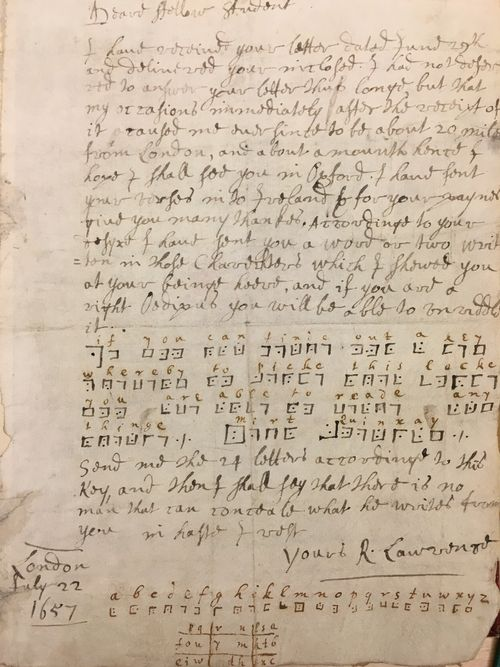 Deare ffellow Student
I have received your letter dated June 29th
and delivered your inclosed. I had not defer
red to answer your letter thus longe, but that
my occasions immediately after the receist of
it caused me ever since to be about 20 mile
from London, and about a mounth hence I
hope I shall see you in Oxford. I have sent
your verses in to Ireland & for your paynes
give you many thankes. Accordinge to your
desyre I have sent you a word or two writ
=ten in those Charechters which I shewed you
at your beinge heere, and if you are a
right Oedipus you will be able to unriddle
it.
if you can finde out a key
whereby to picke this locke
you are able to reade any
thinge mirt Quinxay
Send me the 24 letters accordinge to this
Key, and then I shall say that there is no
man that can conceale what he writes from
you in haste I rest
Yours R. Lawrence
London
July 22
1657
a b c d e f g h i k l m n o p q r s t u w x y z